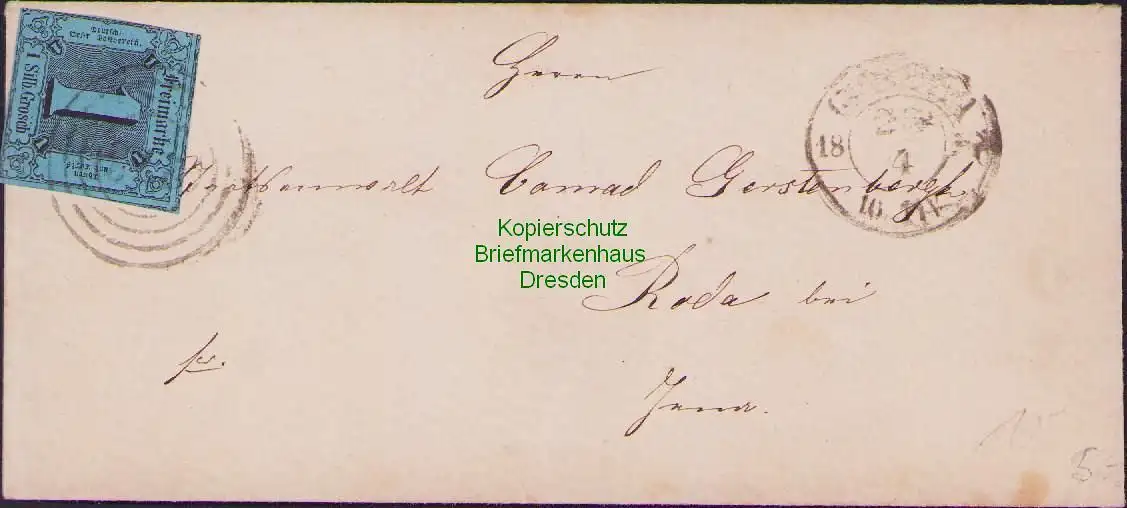 Deutsch.
Oestr. Postverein.
Freimarke
1 Silb. Grosch
1
Thurn
und Taxis
Herrn
Conrad Gerstenbergk
Roda bei
Jena.
fr.
18
4
Kopierschutz
Briefmarkenhaus
Dresden
5